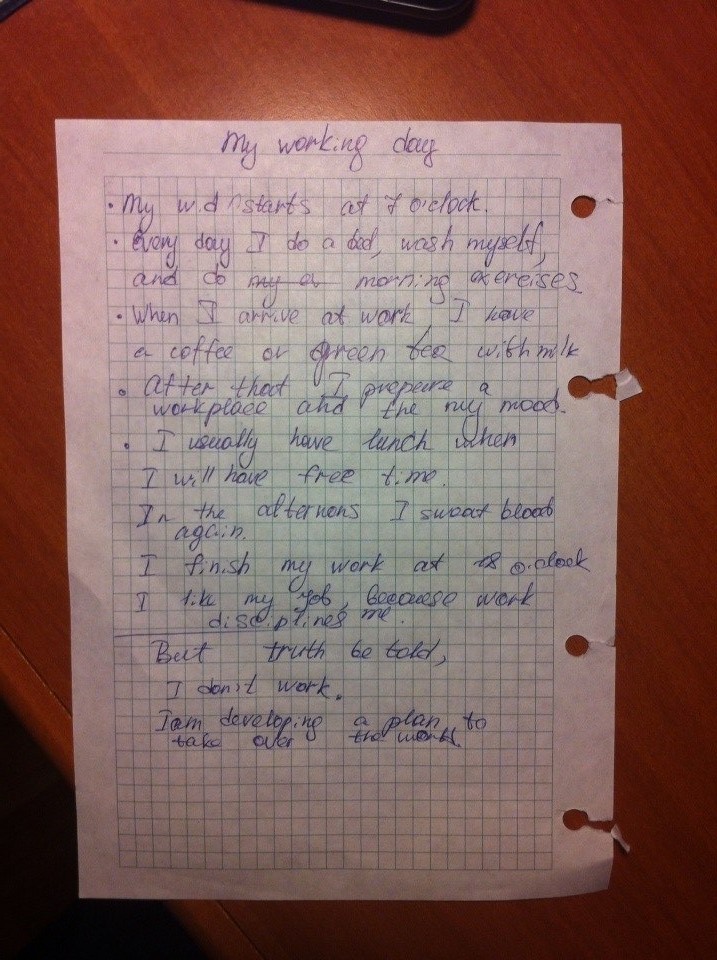 My working day
• My w.d starts at 7 o'clock.
• Every day I do a bed, wash myself,
and do my a morning exereises.
• When I arrive at work I have
a coffee or green tea with milk
• After that I prepeire a
workplace and the my mood.
• I usually have lunch when
I will have free time.
In the afternons I sweat blood
again.
I finish my work at 18 o.clock
I like my job, because work
disciplines me.
But truth be told,
I don't work.
I am developing a plan to
take over the world.